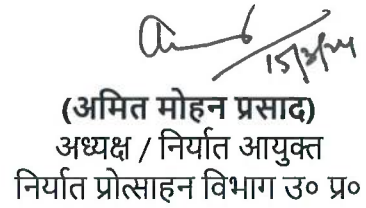 15/3/24
(अमित मोहन प्रसाद)
अध्यक्ष / निर्यात आयुक्त
निर्यात प्रोत्साहन विभाग उ० प्र०